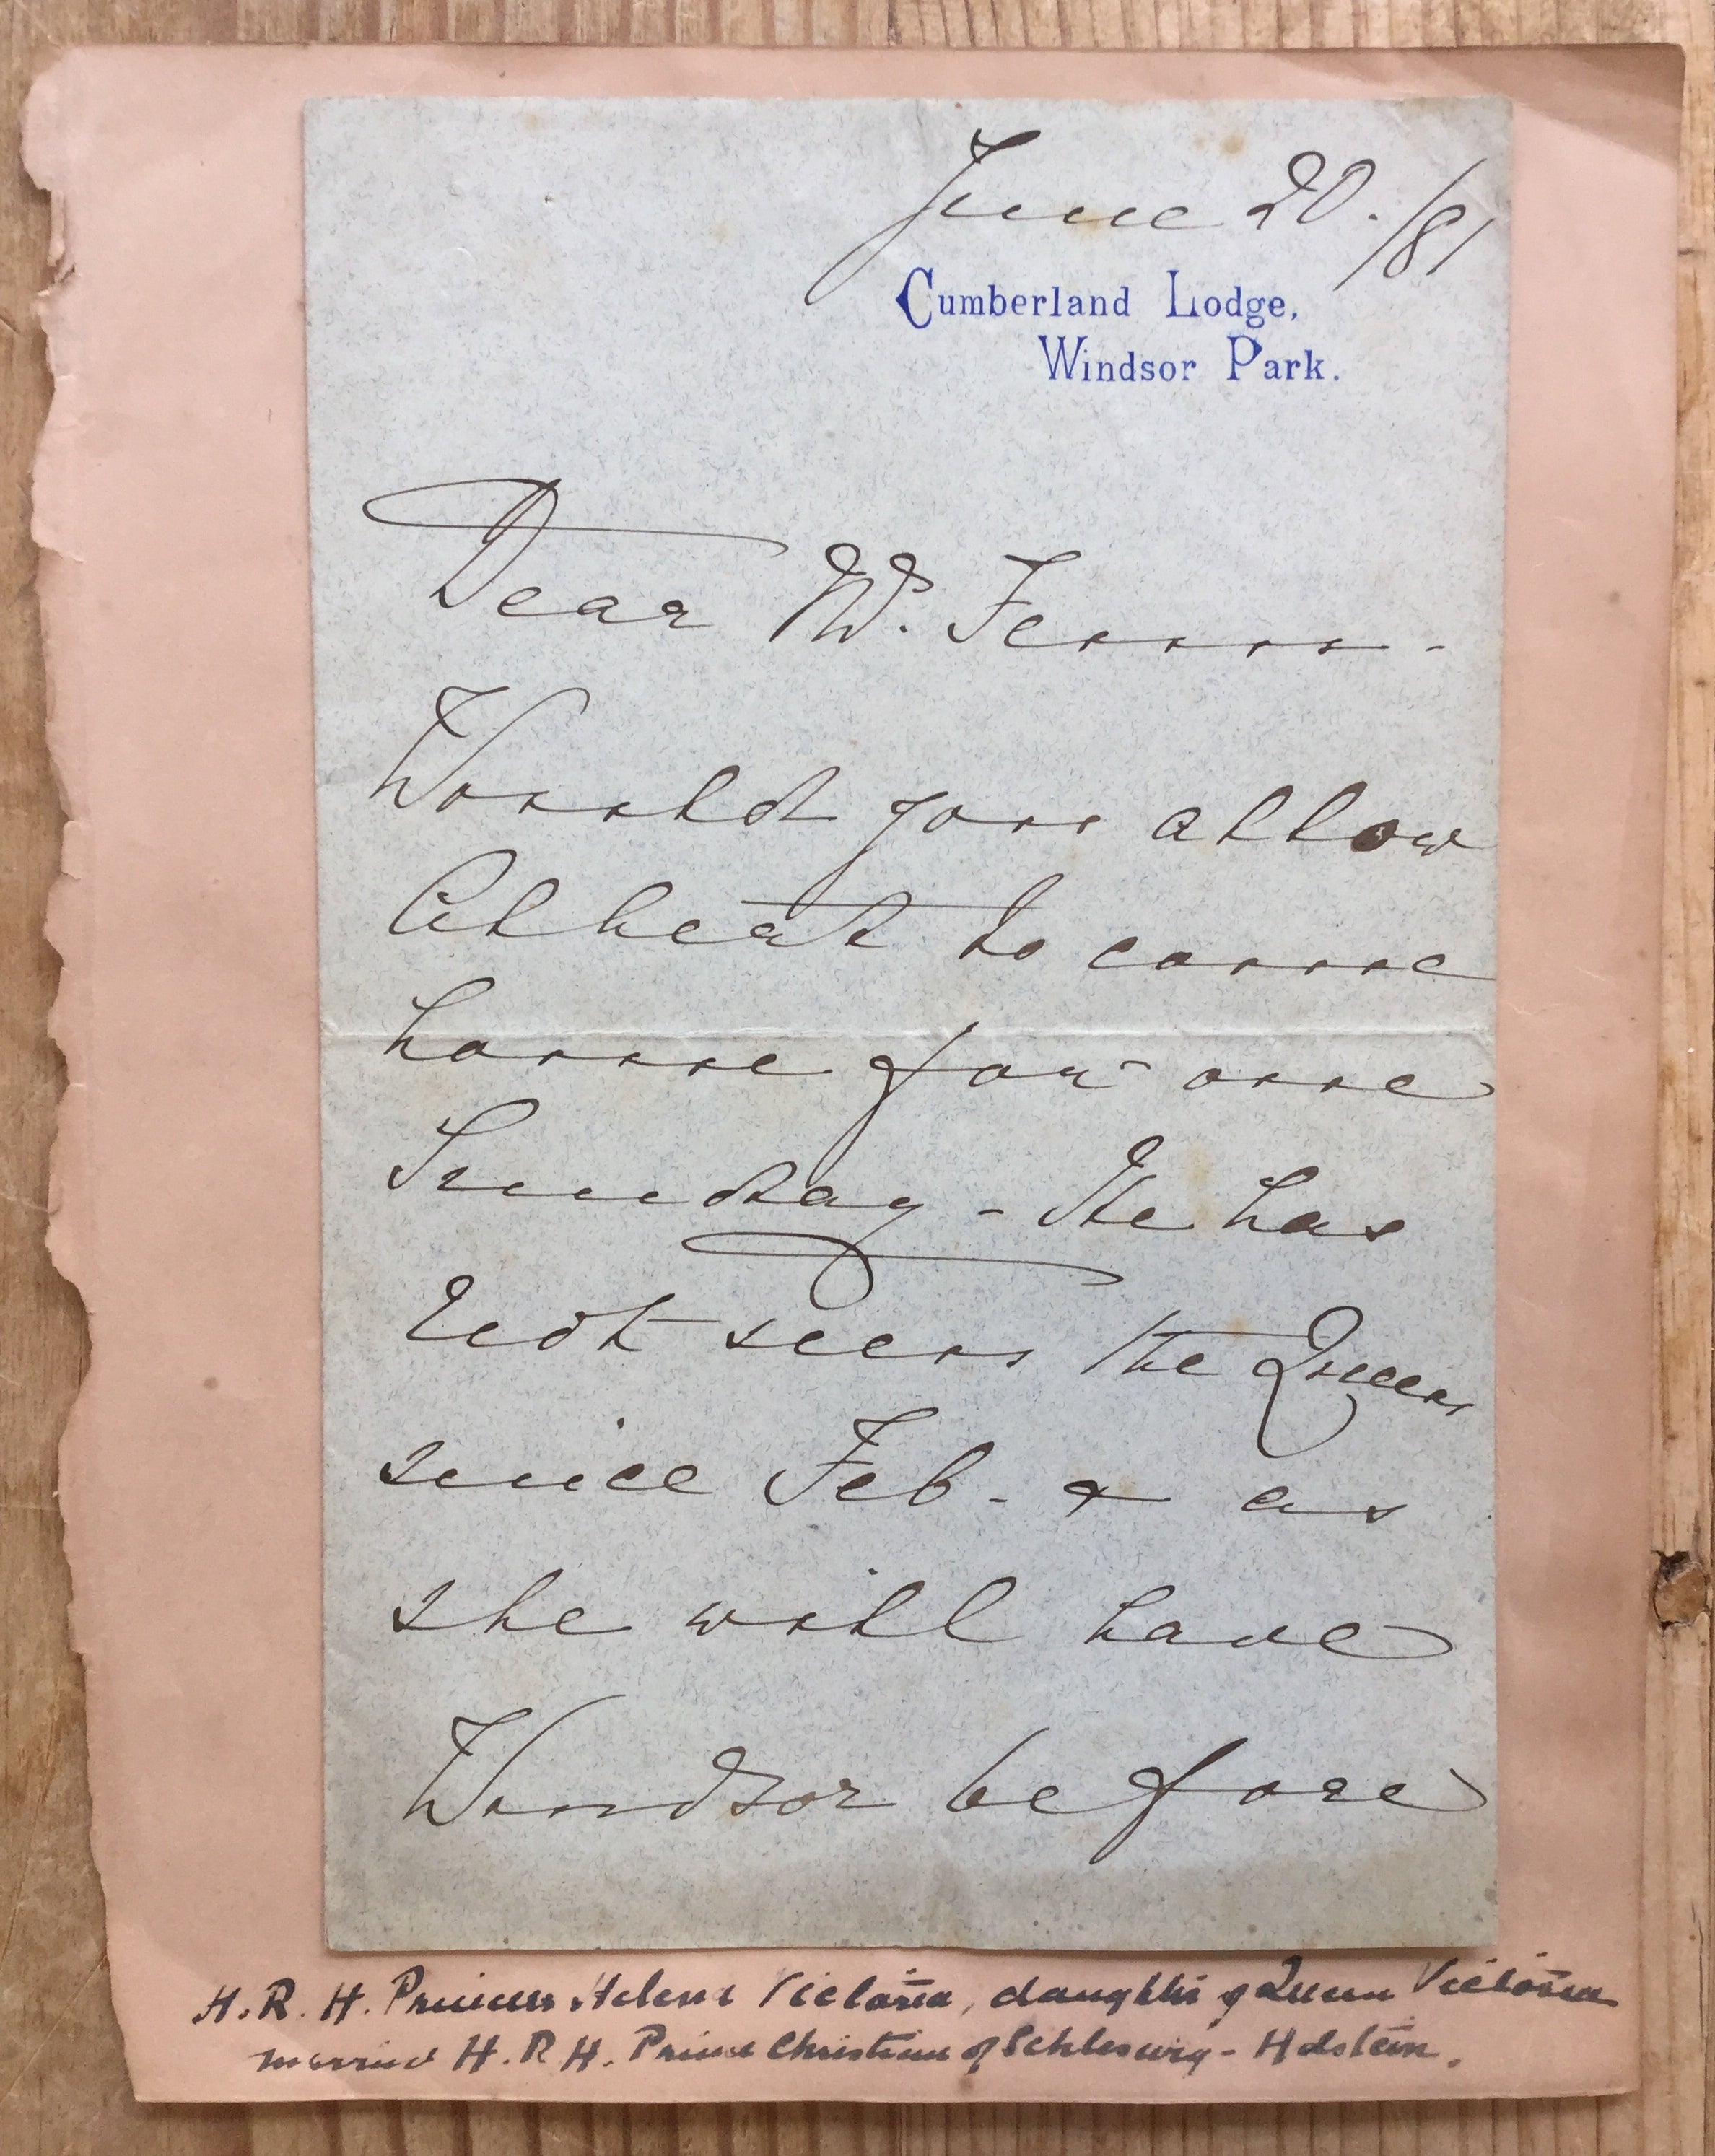 June 20./81
Cumberland Lodge,
Windsor Park.
Dear Mr.
Would you allow
Albert to come
home for one
Sunday - He has
not seen the Queen
since Feb - & as
she will have
Windsor before
H.R.H. Princess Helena Victoria, daughter of Queen Victoria
married H.R.H. Prince Christian of Schleswig-Holstein.